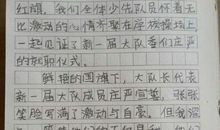 红旗，我们全体少先队员怀着无
比激动的心情齐整在学校操场上
一起见证了新一届大队委们庄严
的就职仪式。
鲜艳的国旗下，大队长代表
新一届大队成员庄严宣誓，张张
笑脸写满了激动与自豪。但我深